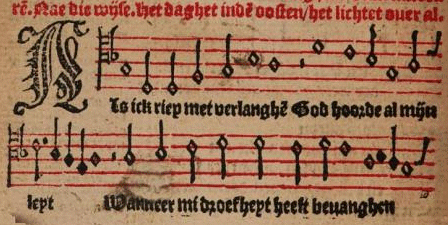 rē. Nae die wijse. Het daghet indē oosten/het lichtet ouer al.
Als ick riep met verlanghē God hoorde al mijn
leyt Wanneer mi droefheyt heeft beuanghen